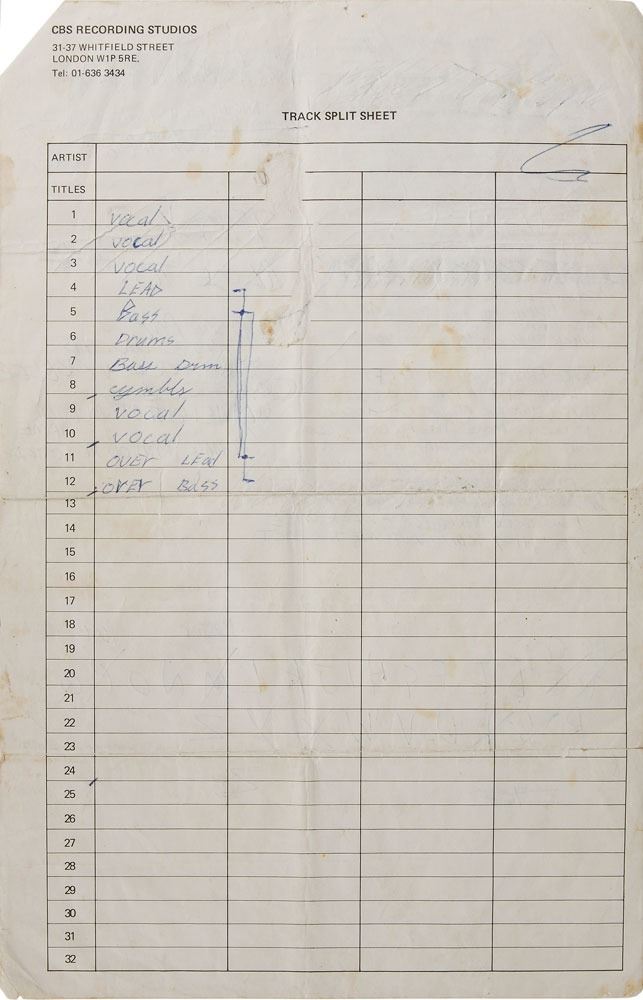 CBS RECORDING STUDIOS
31-37 WHITFIELD STREET
LONDON W1P 5RE.
Tel: 01-636 3434
TRACK SPLIT SHEET
ARTIST
TITLES
1 vocal
2 vocal
3 vocal
4 LEAD
5 Bass
6 Drums
7 Bass Drm
8 cymbls
9 vocal
10 vocal
11 OVER LEad
12 OVER Bass
13
14
15
16
17
18
19
20
21
22
23
24
25
26
27
28
29
30
31
32